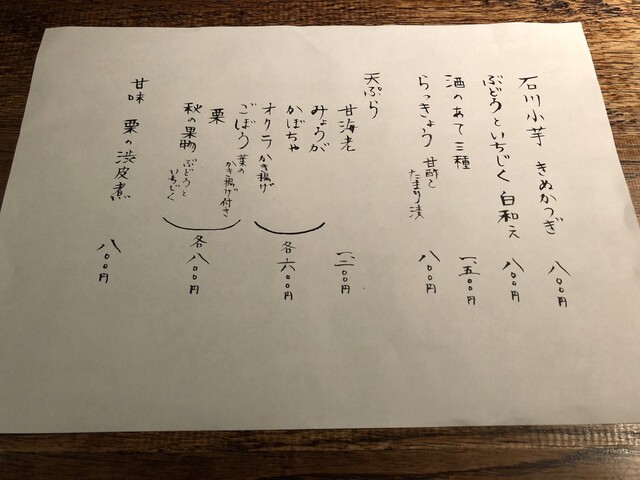 石川小芋 きぬかつぎ 八〇〇円
ぶどうといちじく 白和え 八〇〇円
酒のあて三種 一、五〇〇円
らっきょう 甘酢と たまり漬 八〇〇円
天ぷら
甘海老 一、二〇〇円
みょうが
かぼちゃ
オクラ かき揚げ
各六〇〇円
ごぼう 葉の かき揚げ付き
栗
秋の果物 ぶどうと いちじく
各八〇〇円
甘味 栗の渋皮煮 八〇〇円